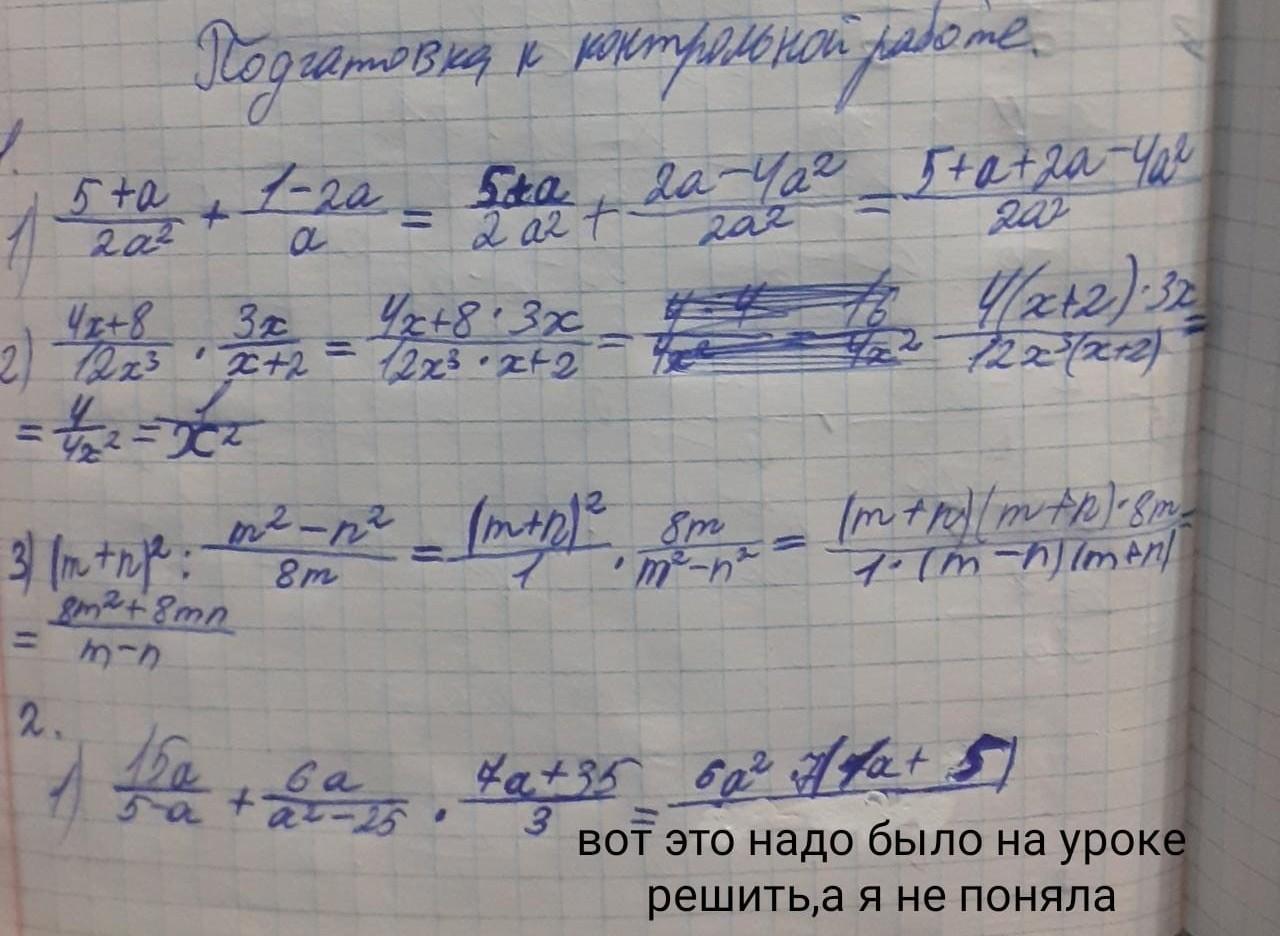 Подгатовка к контрольной работе.
1.
1) (5+a)/(2a²) + (1-2a)/a = (5+a)/(2a²) + (2a-4a²)/(2a²) = (5+a+2a-4a²)/(2a²)
2) (4x+8)/(12x³) · (3x)/(x+2) = (4x+8·3x)/(12x³·x+2) = (4(x+2)·3x)/(12x³(x+2)) =
= 4/(4x²) = 1/x²
3) (m+n)² : (m²-n²)/(8m) = (m+n)²/1 · (8m)/(m²-n²) = ((m+n)(m+n)·8m)/(1·(m-n)(m+n)) =
= (8m²+8mn)/(m-n)
2.
1) (15a)/(5-a) + (6a)/(a²-25) · (7a+35)/3 =
вот это надо было на уроке
решить,а я не поняла